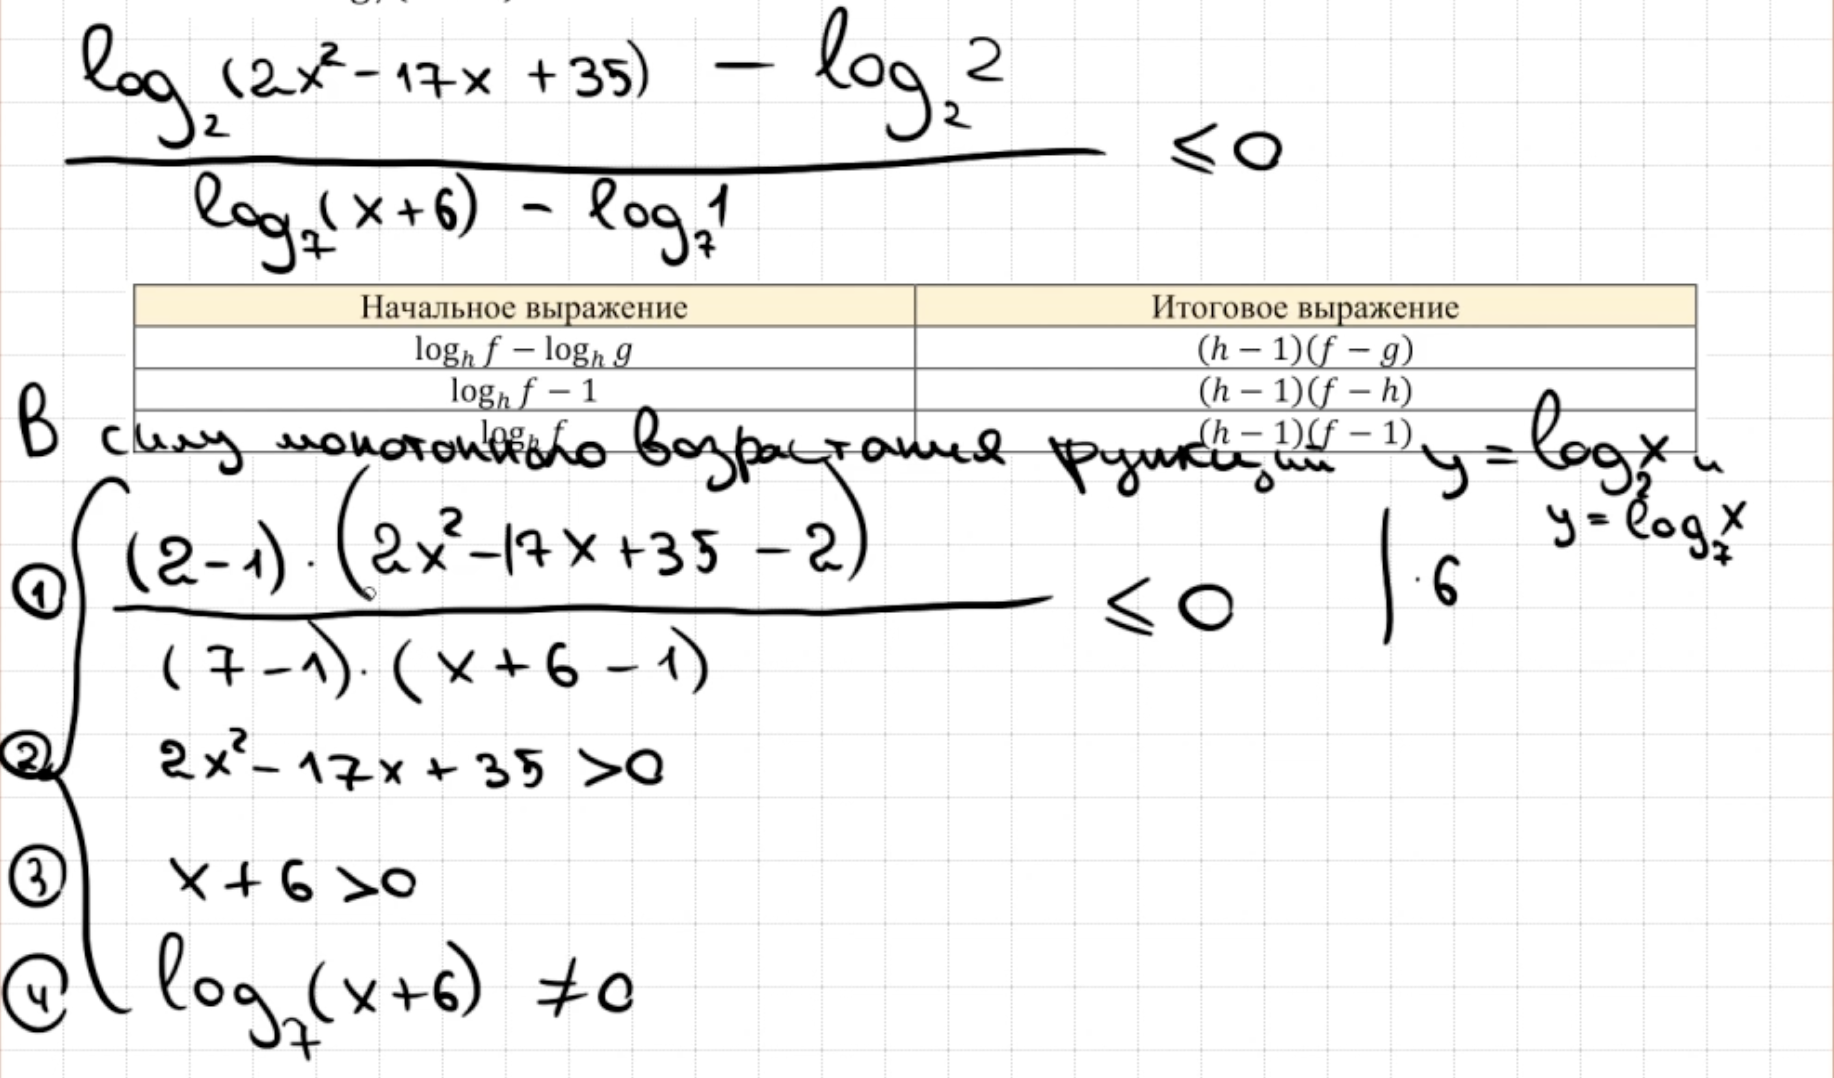 log₂(2x² - 17x + 35) - log₂2
≤ 0
log₇(x+6) - log₇1
Начальное выражение Итоговое выражение
logₕ f − logₕ g (h − 1)(f − g)
logₕ f − 1 (h − 1)(f − h)
logₕ f (h − 1)(f − 1)
В силу монотонного возрастания функций y = log₂x и
y = log₇x
① (2-1)·(2x² - 17x + 35 - 2)
≤ 0 | ·6
(7-1)·(x+6-1)
② 2x² - 17x + 35 > 0
③ x + 6 > 0
④ log₇(x+6) ≠ 0